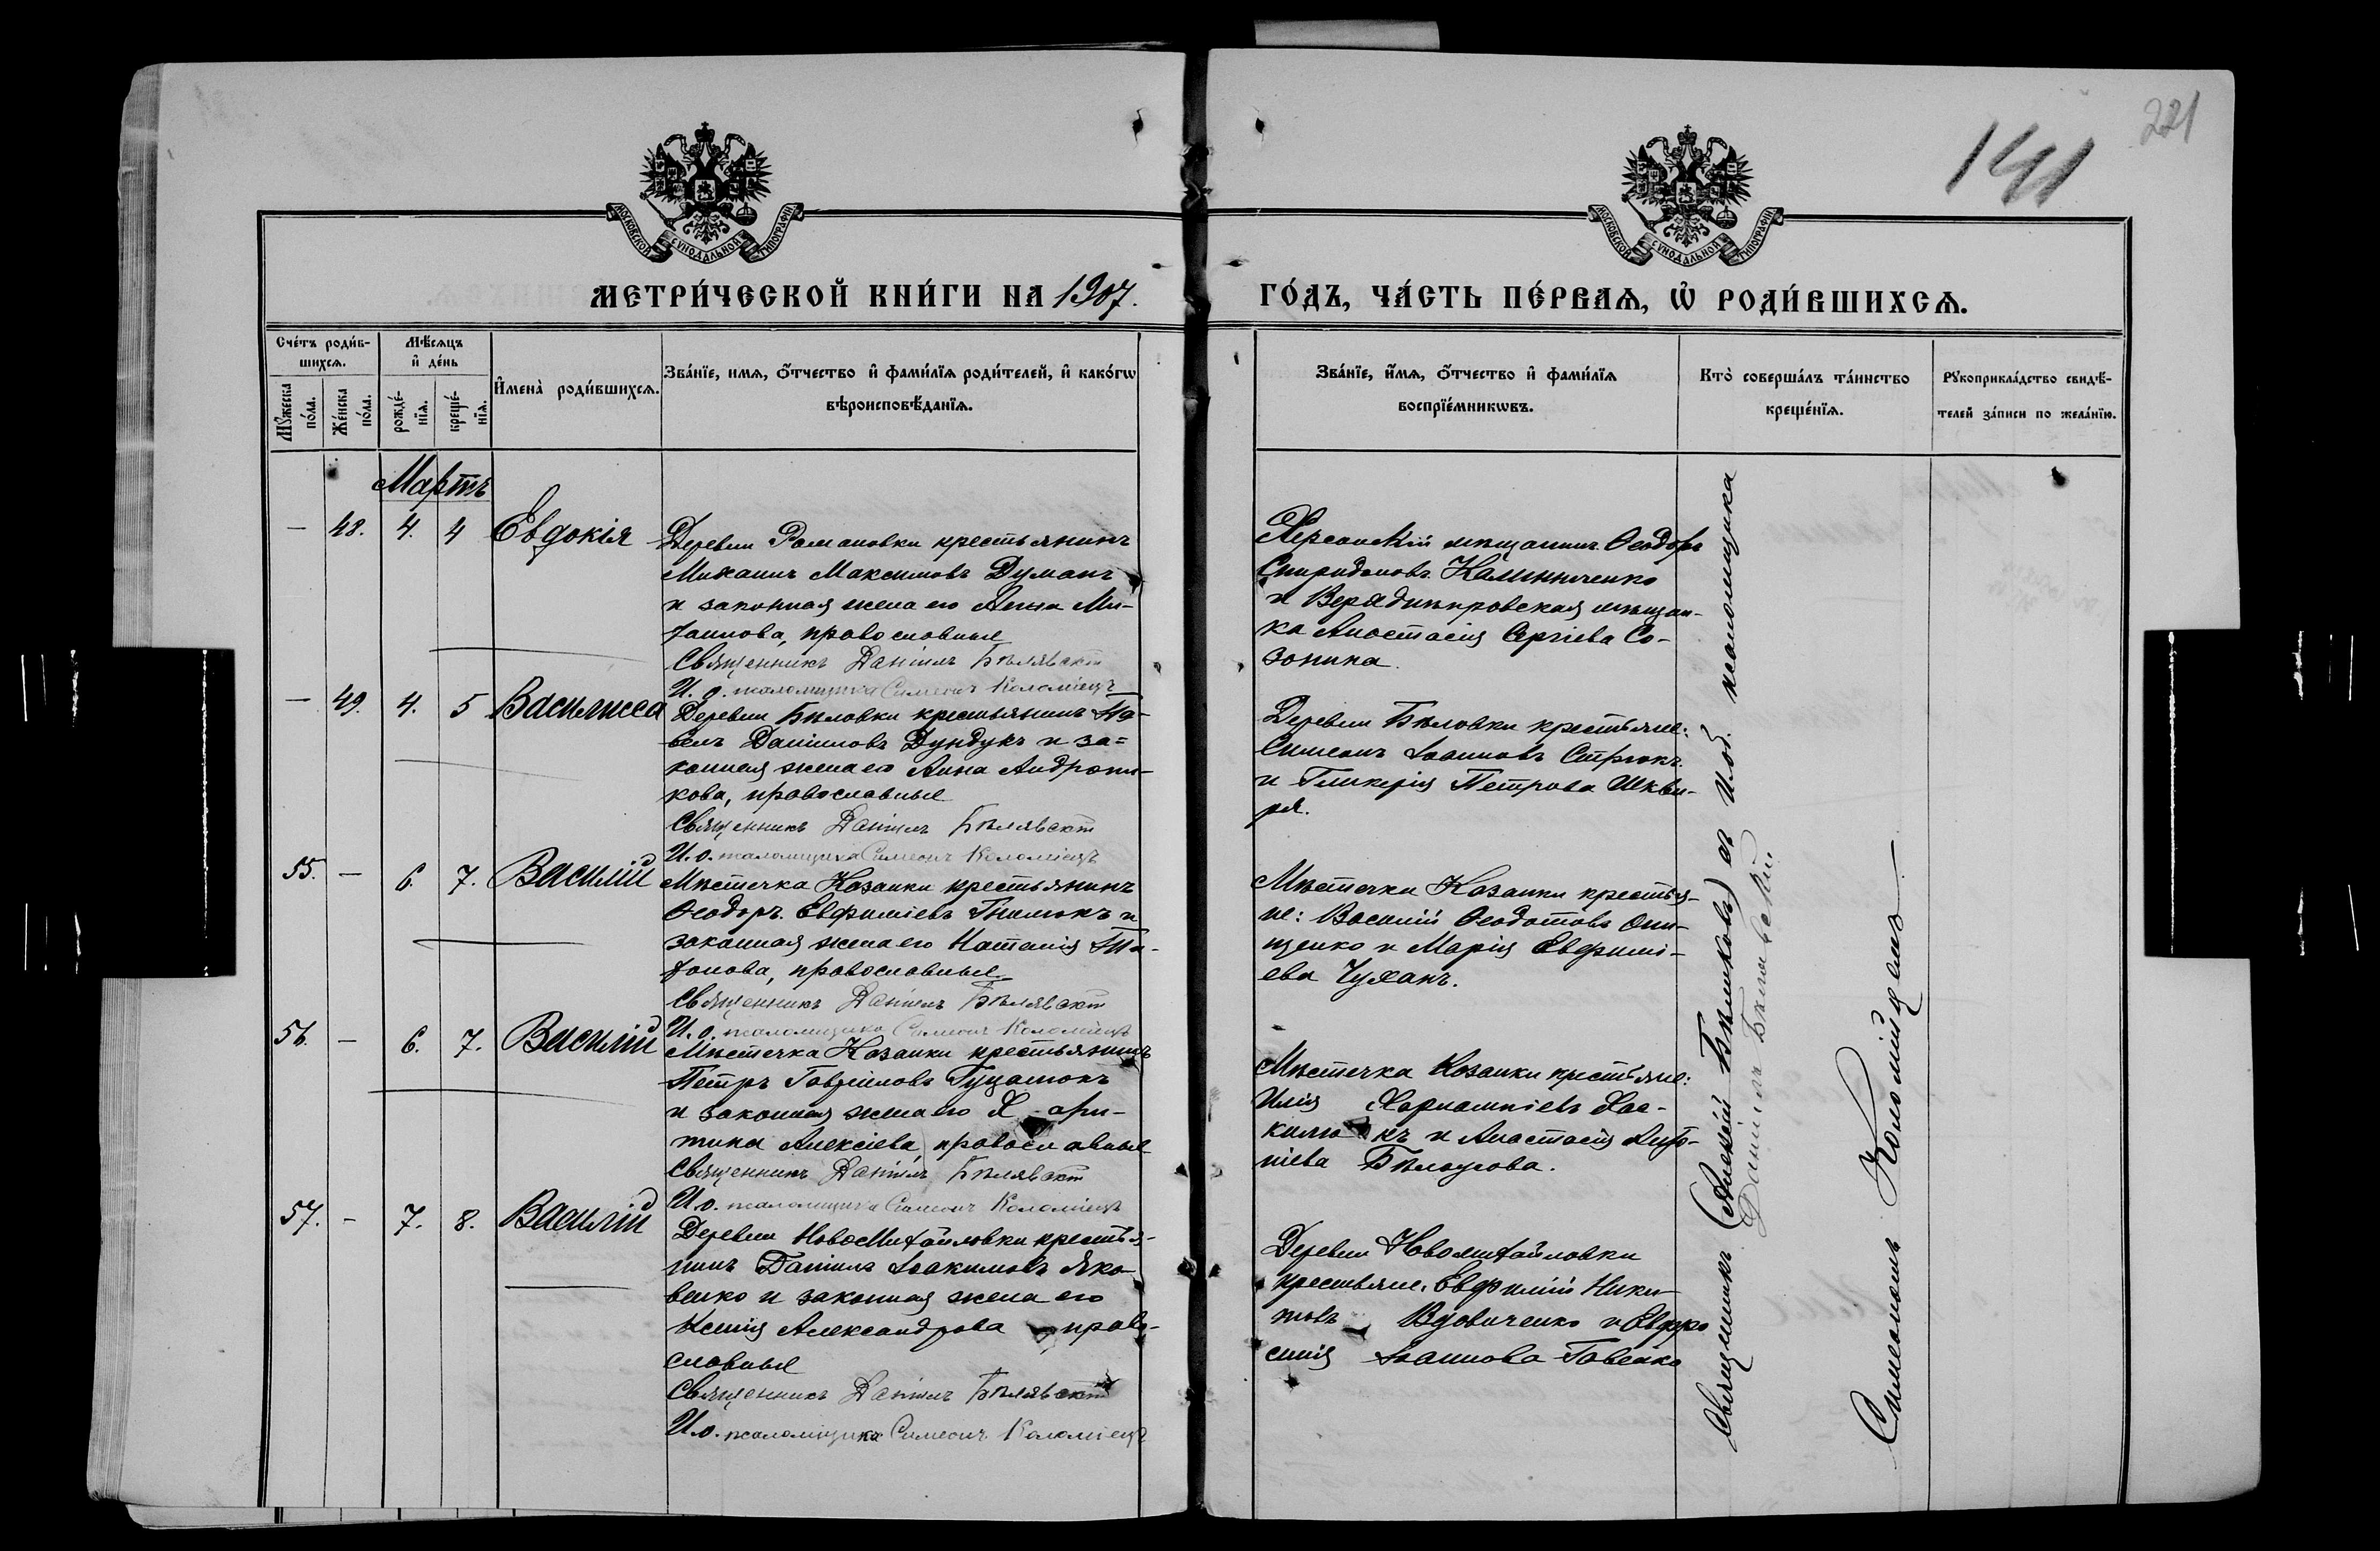 221
141
МОСКОВСКОЙ СѴНОДАЛЬНОЙ ТИПОГРАФІИ
МОСКОВСКОЙ СѴНОДАЛЬНОЙ ТИПОГРАФІИ
МЕТРИ́ЧЕСКОЙ КНИ́ГИ НА 1907.
ГО́ДЪ, ЧА́СТЬ ПЕ́РВАѦ, Ѽ РОДИ́ВШИХСѦ.
Сче́тъ роди́в-
шихсѧ.
Мꙋ́жеска
по́ла.
Же́нска
по́ла.
Мѣ́сѧцъ
и҆ де́нь
рожде́-
нїѧ.
креще́-
нїѧ.
И҆мена̀ роди́вшихсѧ.
Зва́нїе, имѧ, ѻ҆́тчество и҆ фами́лїѧ роди́телей, и҆ како́гѡ
вѣроисповѣ́данїѧ.
Зва́нїе, и҆́мѧ, ѻ҆́тчество и҆ фами́лїѧ
воспрїе́мникѡвъ.
Кто̀ соверша́лъ та́инство
креще́нїѧ.
Рꙋкоприкла́дство свидѣ́-
телей за́писи по жела́нїю.
Мартъ
— 48. 4. 4 Евдокія
Деревни Романовки крестьянинъ
Михаилъ Максимовъ Думанъ
и законная жена его Анна Ми-
хаилова, православные
Священникъ Даніилъ Бѣлявскій
И. о. псаломщика Симеонъ Коломіецъ
Херсонскій мѣщанинъ Ѳеодоръ
Спиридоновъ Калиниченко
и Верхднѣпровская мѣщан-
ка Анастасія Сергіева Со-
зонина.
— 49. 4. 5 Василисса
Деревни Бѣловки крестьянинъ Па-
велъ Даниловъ Дундукъ и за-
конная жена его Анна Андрони-
кова, православные
Священникъ Даніилъ Бѣлявскій
И. о. псаломщика Симеонъ Коломіецъ
Деревни Бѣловки крестьяне:
Симеонъ Іоанновъ Стрюкъ
и Гликерія Петрова Шкви-
ря.
55. — 6. 7. Василій
Мѣстечка Казанки крестьянинъ
Ѳеодоръ Евфиміевъ и
законная жена его Наталія
православные
Священникъ Даніилъ Бѣлявскій
И. о. псаломщика Симеонъ Коломіецъ
Мѣстечки Казанки крестья-
не: Василій Ѳеодотовъ Они-
щенко и Марія Евфимі-
ева Чуханъ.
56. — 6. 7. Василій
Мѣстечка Казанки крестьянинъ
Петръ Гавріиловъ Гуцалюкъ
и законная жена его Хари-
тина Алексіева православные
Священникъ Даніилъ Бѣлявскій
И. о. псаломщика Симеонъ Коломіецъ
Мѣстечка Казанки крестьяне:
Илія Харлампіевъ
и Анастасія
Бѣлоусова.
57. — 7. 8. Василій
Деревни НовоМихайловки крестья-
нинъ Даніилъ Іоакимовъ Яко-
венко и законная жена его
Ксенія Александрова право-
славные
Священникъ Даніилъ Бѣлявскій
И. о. псаломщика Симеонъ Коломіецъ
Деревни Новомихайловки
крестьяне: Евфимій Ники-
товъ Вдовиченко и Евфро
синія Іоаннова
Священникъ (Алексій Бѣликовъ) съ И.об. псаломщика
Даніилъ Бѣлявскій.
Симеономъ Коломійцемъ